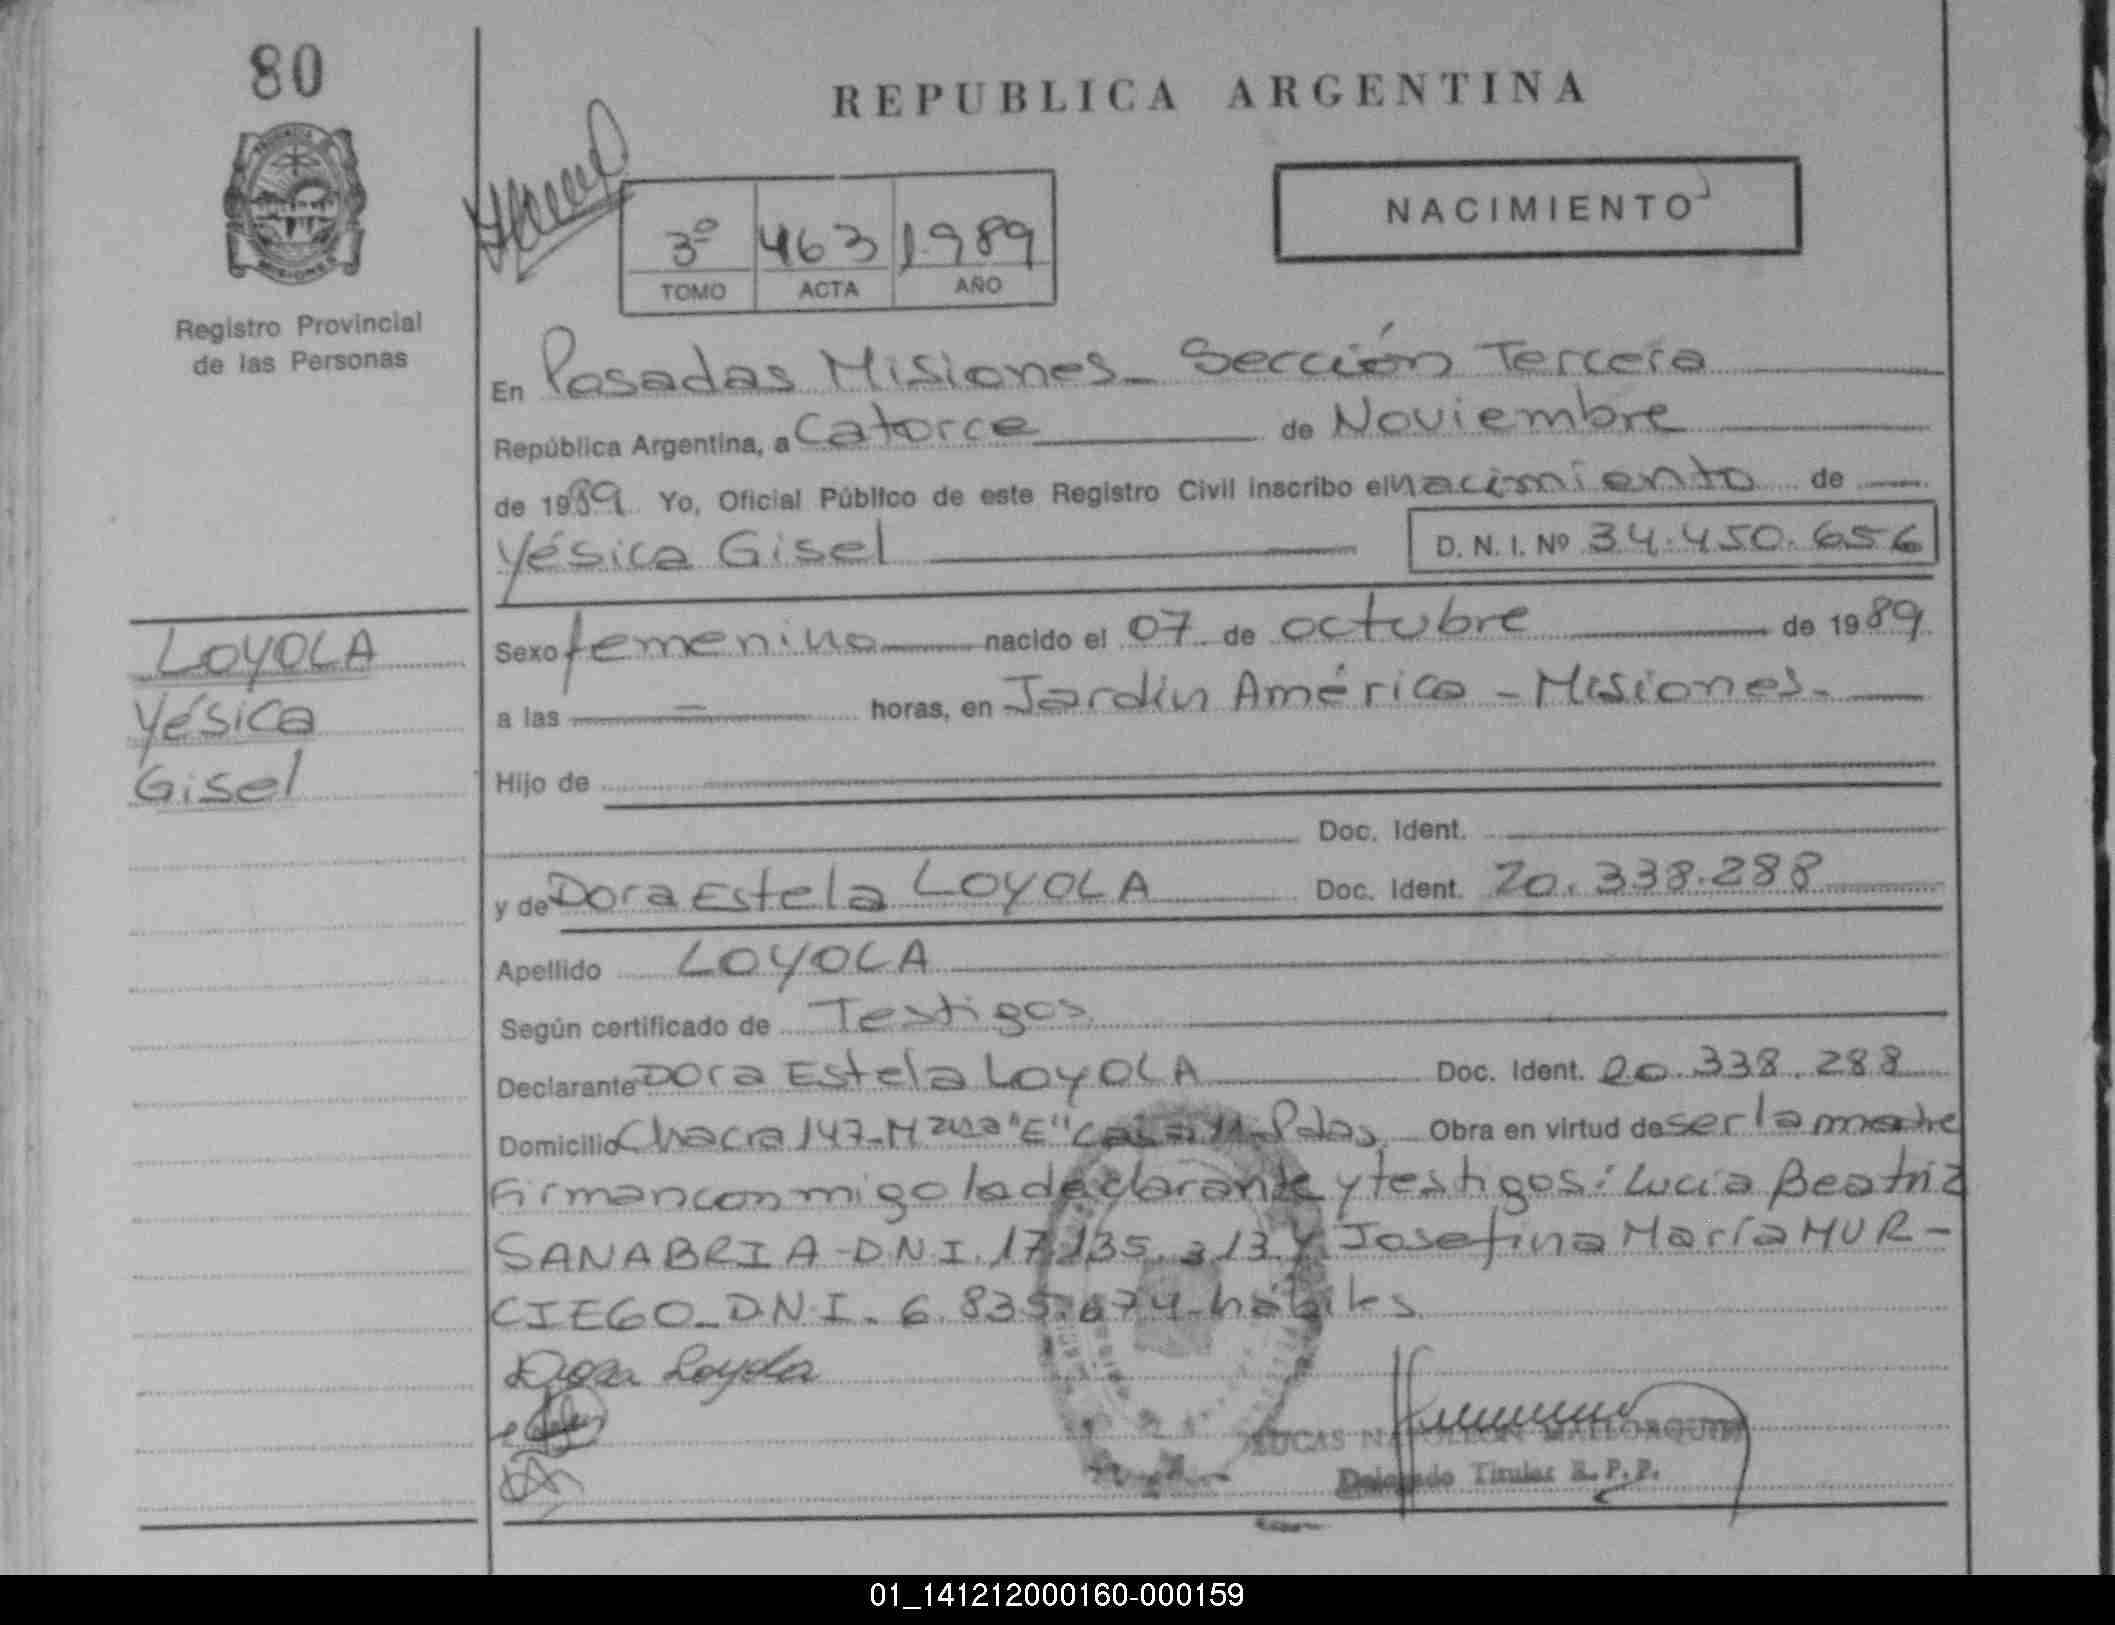 80
REPUBLICA ARGENTINA
PROVINCIA
MISIONES
Registro Provincial
de las Personas
NACIMIENTO
3º 463 1989
TOMO ACTA AÑO
En Posadas Misiones - Sección Tercera
República Argentina, a Catorce de Noviembre
de 1989 Yo, Oficial Público de este Registro Civil inscribo el nacimiento de
Yésica Gisel D. N. I. Nº 34.450.656
LOYOLA
Yésica
Gisel
Sexo femenino nacido el 07 de octubre de 1989
a las — horas, en Jardín América - Misiones -
Hijo de
Doc. Ident.
y de Dora Estela LOYOLA Doc. Ident. 20.338.288
Apellido LOYOLA
Según certificado de Testigos.
Declarante Dora Estela LOYOLA Doc. Ident. 20.338.288
Domicilio Chacra 147-Mzna "E" Casa Pdas, Obra en virtud de ser la madre
Firman conmigo la declarante y testigos: Lucía Beatriz
SANABRIA - D.N.I. 17.135.313 y Josefina María MUR-
CIEGO - D.N.I. 6.835.674 - hábiles
Dora Loyola
LUCAS NAPOLEON MALLORQUIN
Delegado Titular R.P.P.
01_141212000160-000159